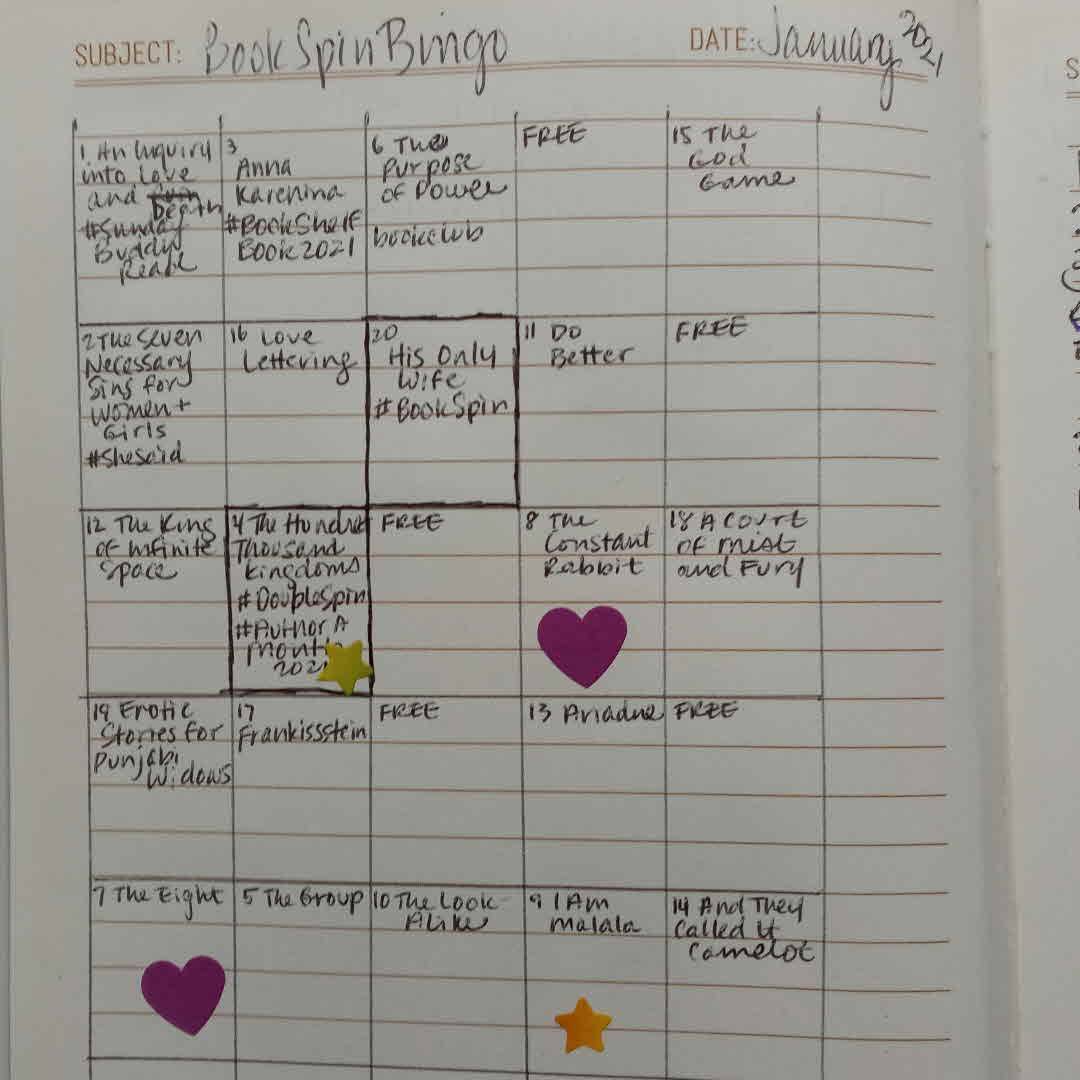 SUBJECT: BookSpinBingo
DATE: January 2021
1 An Inquiry
into Love
and Death
#Sunday
Buddy
Read
3
Anna
Karenina
#BookShelf
Book2021
6 The
Purpose
of Power
bookclub
FREE
15 The
God
Game
2 The Seven
Necessary
Sins for
Women +
Girls
#SheSaid
16 Love
Lettering
20
His Only
Wife
#BookSpin
11 Do
Better
FREE
12 The King
of Infinite
Space
4 The Hundred
Thousand
Kingdoms
#DoubleSpin
#Author A
Month
202
FREE
8 The
Constant
Rabbit
18 A Court
of Mist
and Fury
19 Erotic
Stories for
Punjabi
Widows
17
Frankissstein
FREE
13 Ariadne
FREE
7 The Eight
5 The Group
10 The Look-
Alike
9 I Am
Malala
14 And They
Called It
Camelot
S